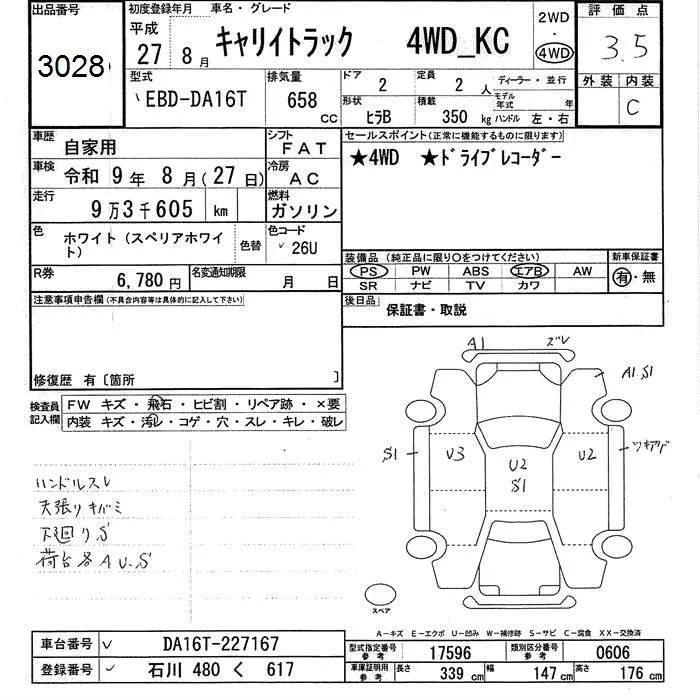 出品番号 初度登録年月 車名・グレード 2WD 評価点
3028 平成 27 8月 キャリイトラック 4WD_KC ・ 4WD 3.5
型式 排気量 ドア 2 定員 2人 ディーラー・並行 外装 内装
EBD-DA16T 658 cc モデル年式 年 C
形状 ヒラB 積載 350 kg ハンドル 左・右
車歴 自家用 シフト FAT セールスポイント(正常に機能するものに限ります)
車検 令和 9年 8月(27日) 冷房 AC ★4WD ★ドライブレコーダー
走行 9万3千605 km 燃料 ガソリン
色 ホワイト(スペリアホワイト) 色替 色コード 26U
装備品(純正品に限り○をつけてください) 新車保証書
PS PW ABS エアB AW 有・無
SR ナビ TV カワ
R券 6,780円 名変通知期限 月 日
注意事項申告欄(不具合内容等は具体的に記入して下さい) 後日品 保証書・取説
修復歴 有〔箇所 〕
検査員記入欄 FW キズ・飛石・ヒビ割・リペア跡・×要
内装 キズ・汚レ・コゲ・穴・スレ・キレ・破レ
A1 ズレ
A1.S1
S1 U3 U2 S1 U2
ハンドルスレ
天張りキバミ
下廻りS
荷台各A U.S
スペア
A-キズ E-エクボ U-凹み W-補修跡 S-サビ C-腐食 XX-交換済
車台番号 DA16T-227167 型式指定番号 参考 17596 類別区分番号 参考 0606
登録番号 石川 480 く 617 車庫証明用 参考 長さ 339 cm 幅 147 cm 高さ 176 cm